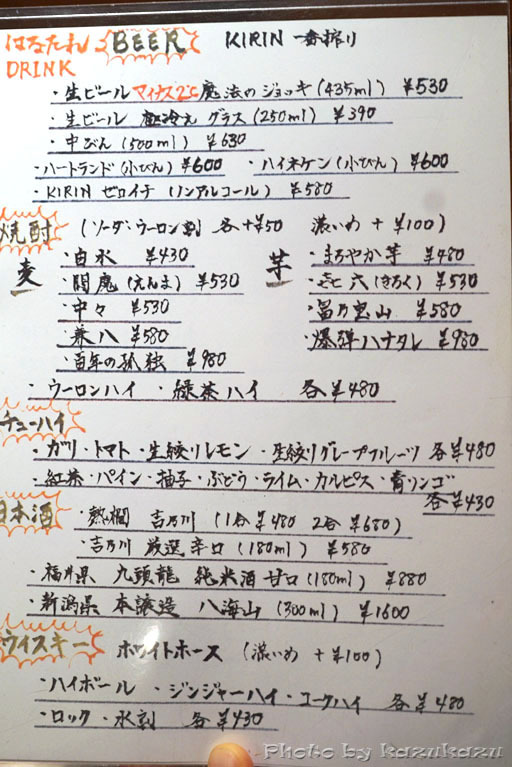 はなたれ BEER KIRIN 一番搾り
DRINK
・生ビール マイナス2℃ 魔法のジョッキ (435ml) ¥530
・生ビール 極冷え グラス (250ml) ¥390
・中びん (500ml) ¥630
・ハートランド (小びん) ¥600 ・ハイネケン (小びん) ¥600
・KIRIN ゼロイチ (ノンアルコール) ¥580
焼酎 (ソーダ、ウーロン割 各+¥50 濃いめ +¥100)
麦 ・白水 ¥430
・閻魔 (えんま) ¥530
・中々 ¥530
・兼八 ¥580
・百年の孤独 ¥980
芋 ・まろやか芋 ¥480
・㐂六 (きろく) ¥530
・冨乃宝山 ¥580
・爆弾ハナタレ ¥980
・ウーロンハイ ・緑茶ハイ 各¥480
チューハイ
・ガリ・トマト・生絞りレモン・生絞りグレープフルーツ 各¥480
・紅茶・パイン・柚子・ぶどう・ライム・カルピス・青リンゴ
各¥430
日本酒 ・熱燗 吉乃川 (1合¥480 2合¥680)
・吉乃川 厳選辛口 (180ml) ¥580
・福井県 九頭龍 純米酒 甘口 (180ml) ¥880
・新潟県 本醸造 八海山 (300ml) ¥1600
ウィスキー ホワイトホース (濃いめ +¥100)
・ハイボール ・ジンジャーハイ・コークハイ 各¥480
・ロック・水割 各¥430
Photo by kazukazu